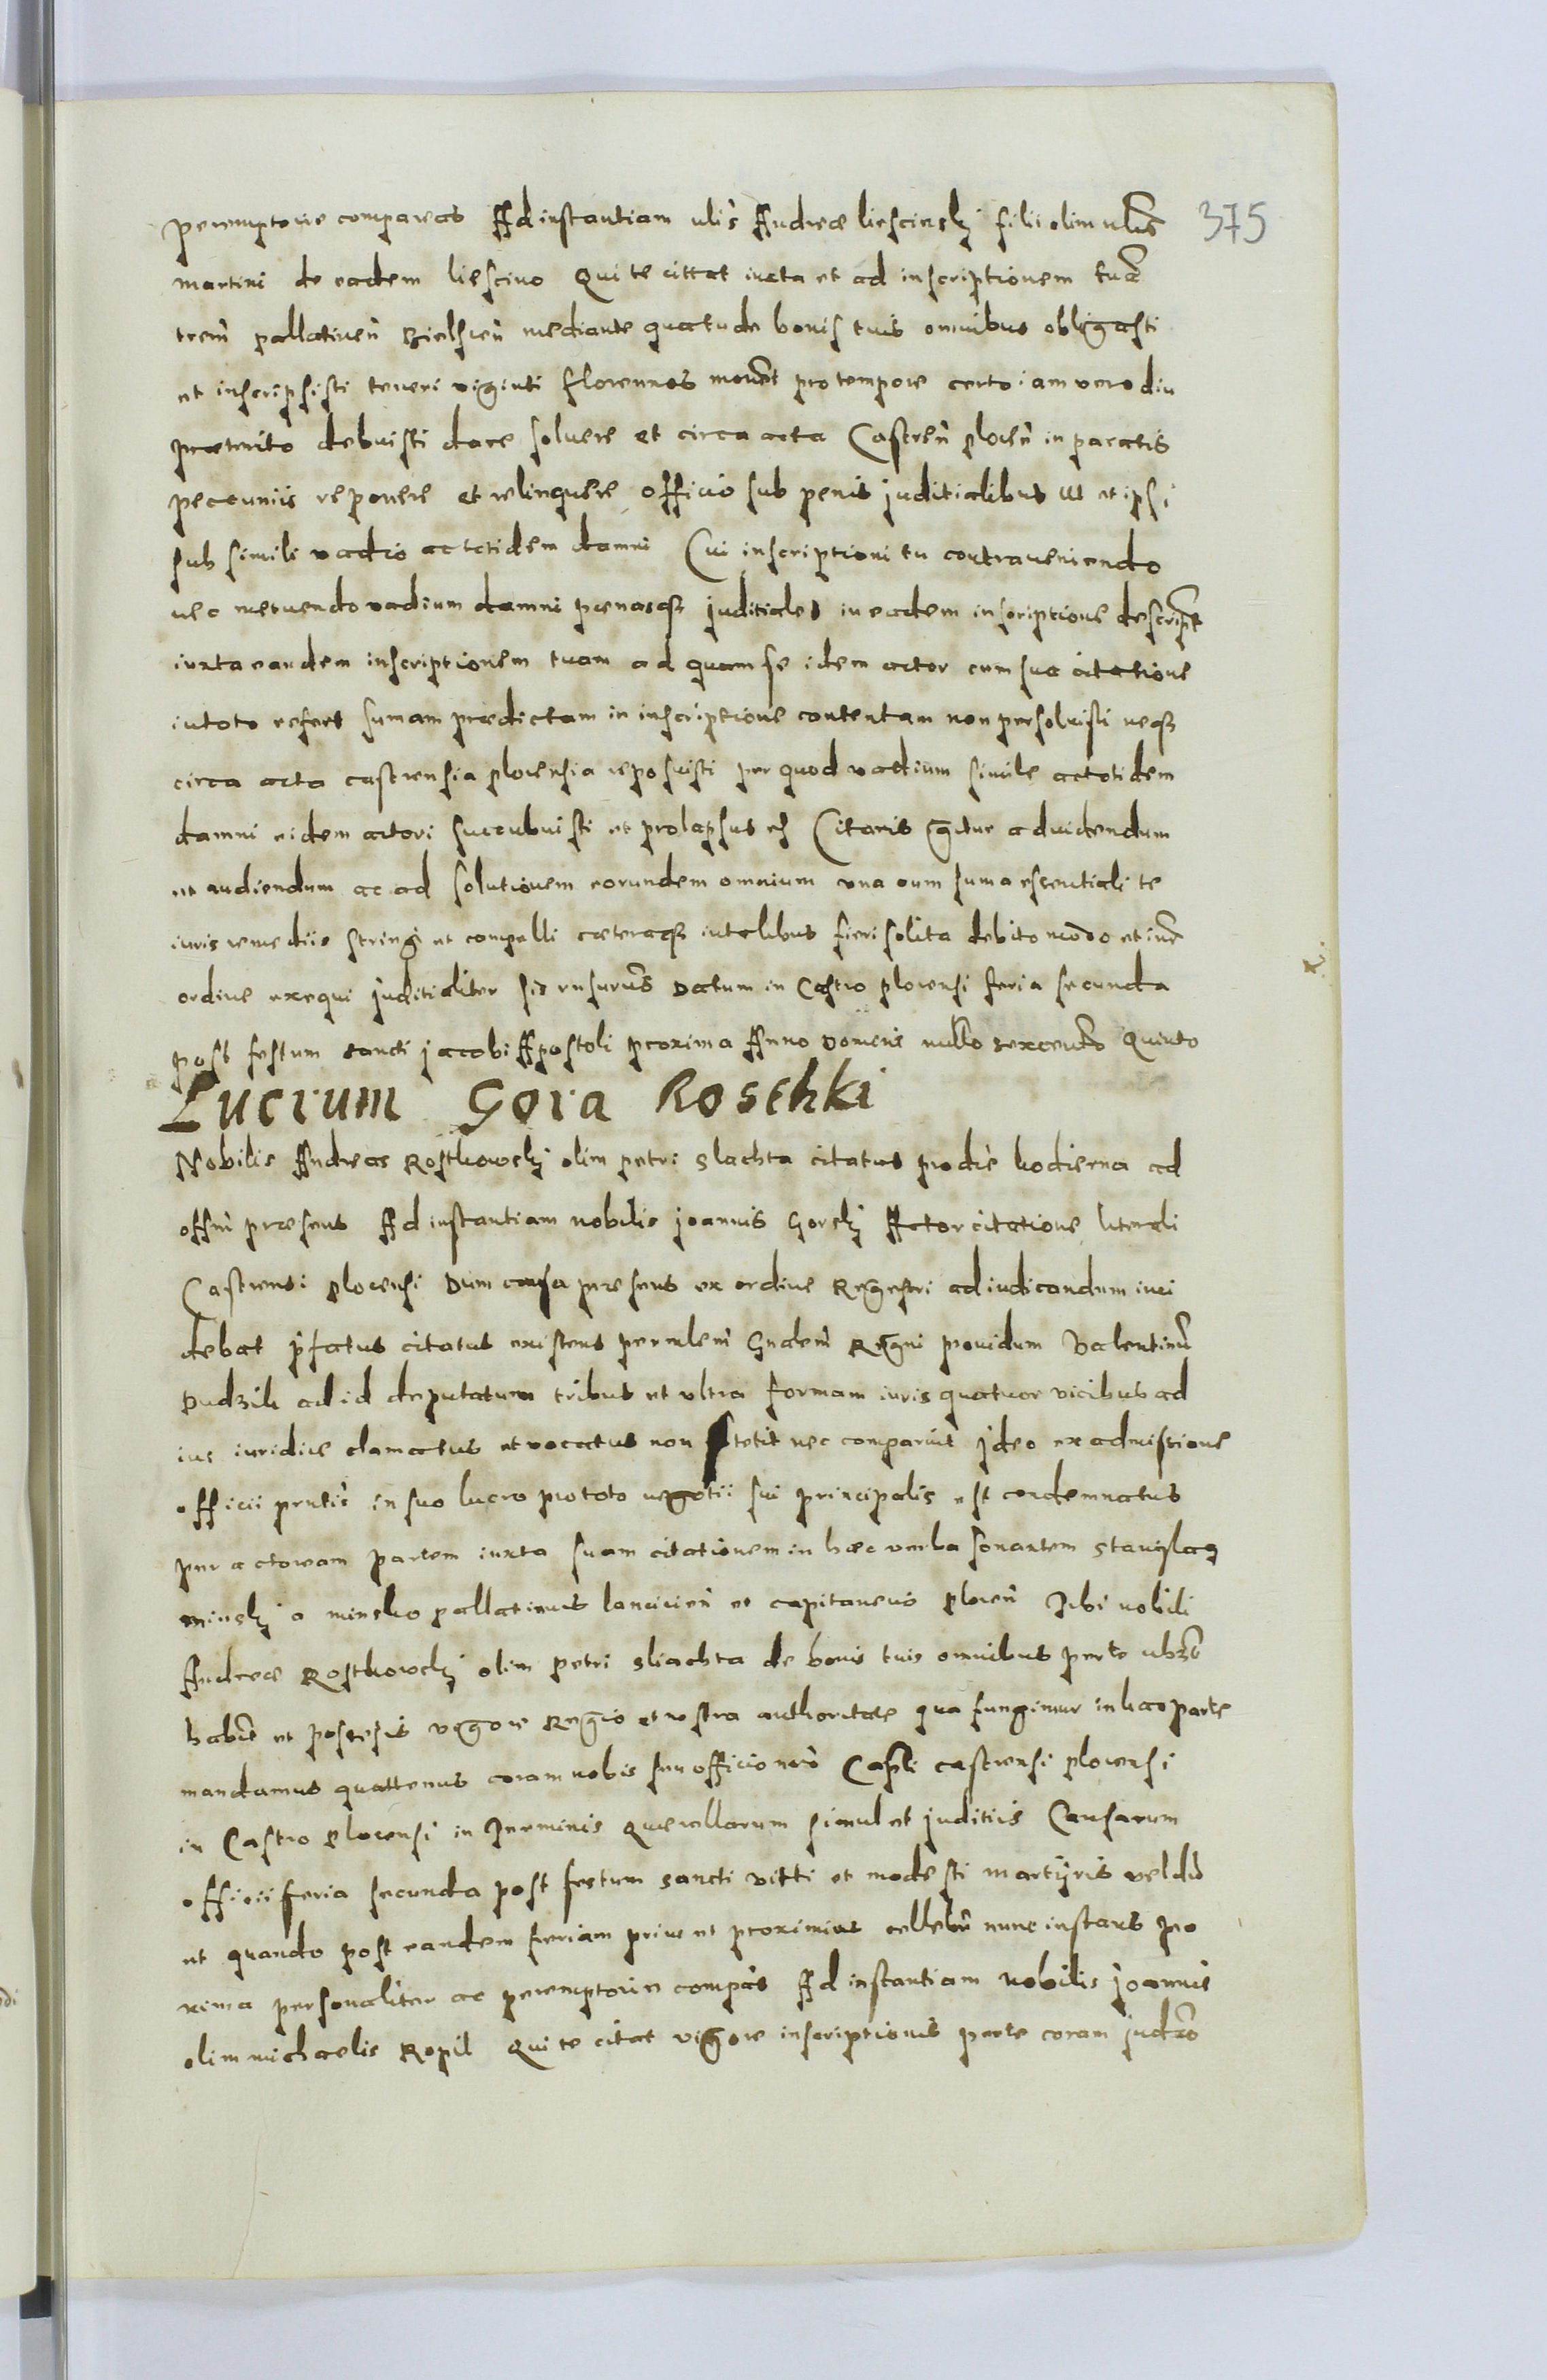 peremptorie compareas Ad instantiam nlis Andreæ liescinskj filii olim nlis 375
martini de eadem liescino Qui te cittat iuxta et ad inscriptionem tuã
trem pallatinen Bielscen mediante qua tu de bonis tuis omnibus obligasti
et inscripsisti teneri viginti florennos monet pro tempore certo iam vero diu
præterito debuisti dare soluere et circa acta Castren plocen in paratis
peccuniis reponere et relinquere officio sub penis juditialibus et ipsi
sub simili vadio ac totidem damni Cui inscriptioni tu contraveniendo
nec metuendo vadium damni pænasq juditiales in eadem inscriptione descript
iuxta eandem inscriptionem tuam ad quam se idem actor cum sua citatione
in toto refert sumam prædictam in inscriptione contentam non persoluisti neq
circa acta castrensia plocensia reposuisti per quod vadium simile ac totidem
damni eidem actori succubuisti et prolapsus es Citaris igitur ad videndum
et audiendum ac ad solutionem eorundem omnium vna cum suma essentiali te
iuris remediis stringi et compelli cæteraq in talibus fieri solita debito modo et iur
ordine exequi juditialiter sis rnsurus Datum in Castro plocensi feria secunda
post festum sancti jacobi Apostoli proxima Anno Domini millo sexcento Quinto
Lucrum Gora Rosthki
Nobilis Andreas Rostkowskj olim petri slachta citatus pro die hodierna ad
offm præsens Ad instantiam nobilis joannis Gorskj Actor citatione literali
Castrensi plocensi Dum causa præsens ex ordine Regestri ad iudicandum inci
debat pfatus citatus existens per mlem Gnalem Regni providum Valentinu
Dudzik ad id deputatum tribus et vltra formam iuris quatuor vicibus ad
ius iuridice clamatus et vocatus non stetit nec comparuit jdeo ex admissione
officii pntis in suo lucro pro toto negotii sui principalis est condemnatus
per actoream partem iuxta suam citationem in hæc verba sonantem Stanislaus
minskj a minsko pallatinus lancicien et capitaneus plocen Tibi nobili
Andreæ Rostkowskj olim petri sliachta de bonis tuis omnibus per te vbiq
habit et possessis vigore Regio et nostra authoritate qua fungimur in hac parte
mandamus quattenus coram nobis seu officio nro Capli castrensi plocensi
in Castro plocensi in Terminis Querellarum simul et juditiis Causarum
officii feria secunda post festum sancti vitti et modesti martÿris vel dũ
et quando post eandem feriam prius et proximius cellebn nunc instans pro
xima personaliter ac peremptorie compas Ad instantiam Nobilis joannis
olim michaelis Ropil Qui te citat vigore inscriptionis per te coram judico